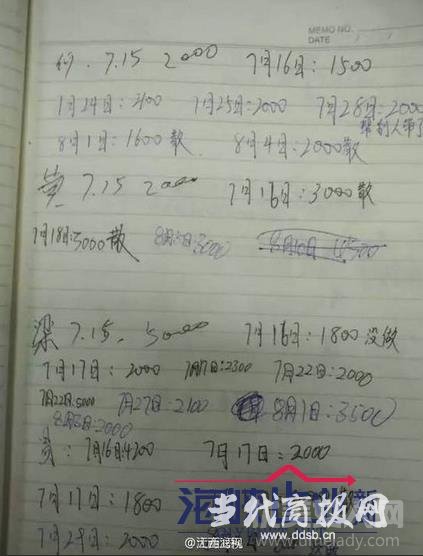 MEMO NO.
DATE
7.15 2000 7月16日:1500
7月24日:2100 7月25日:2000 7月28日:2000
帮别人带了
8月1日:1600散 8月4日:2000散
黄 7.15 2000 7月16日:3000散
7月18日:5000散 8月5日:3000 8月10日 4500
梁 7.15. 5000 7月16日:1800没做
7月17日:2000 7月17日:2300 7月22日:2000
7月22日:5000 7月27日:2100 8月1日:3500
8月5日:2000
7月16日:4300 7月17日:2000
7月17日:1800
7月29日:2000
当代商报网
www.ddsb.cn
@江西混视
www.dmelady.com